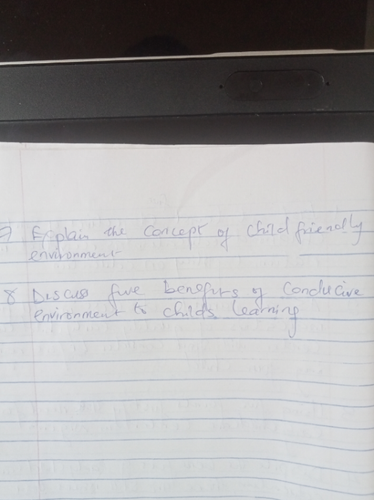 7 Explain the concept of child friendly
environment
8 Discuss five benefits of conducive
environment to child's learning